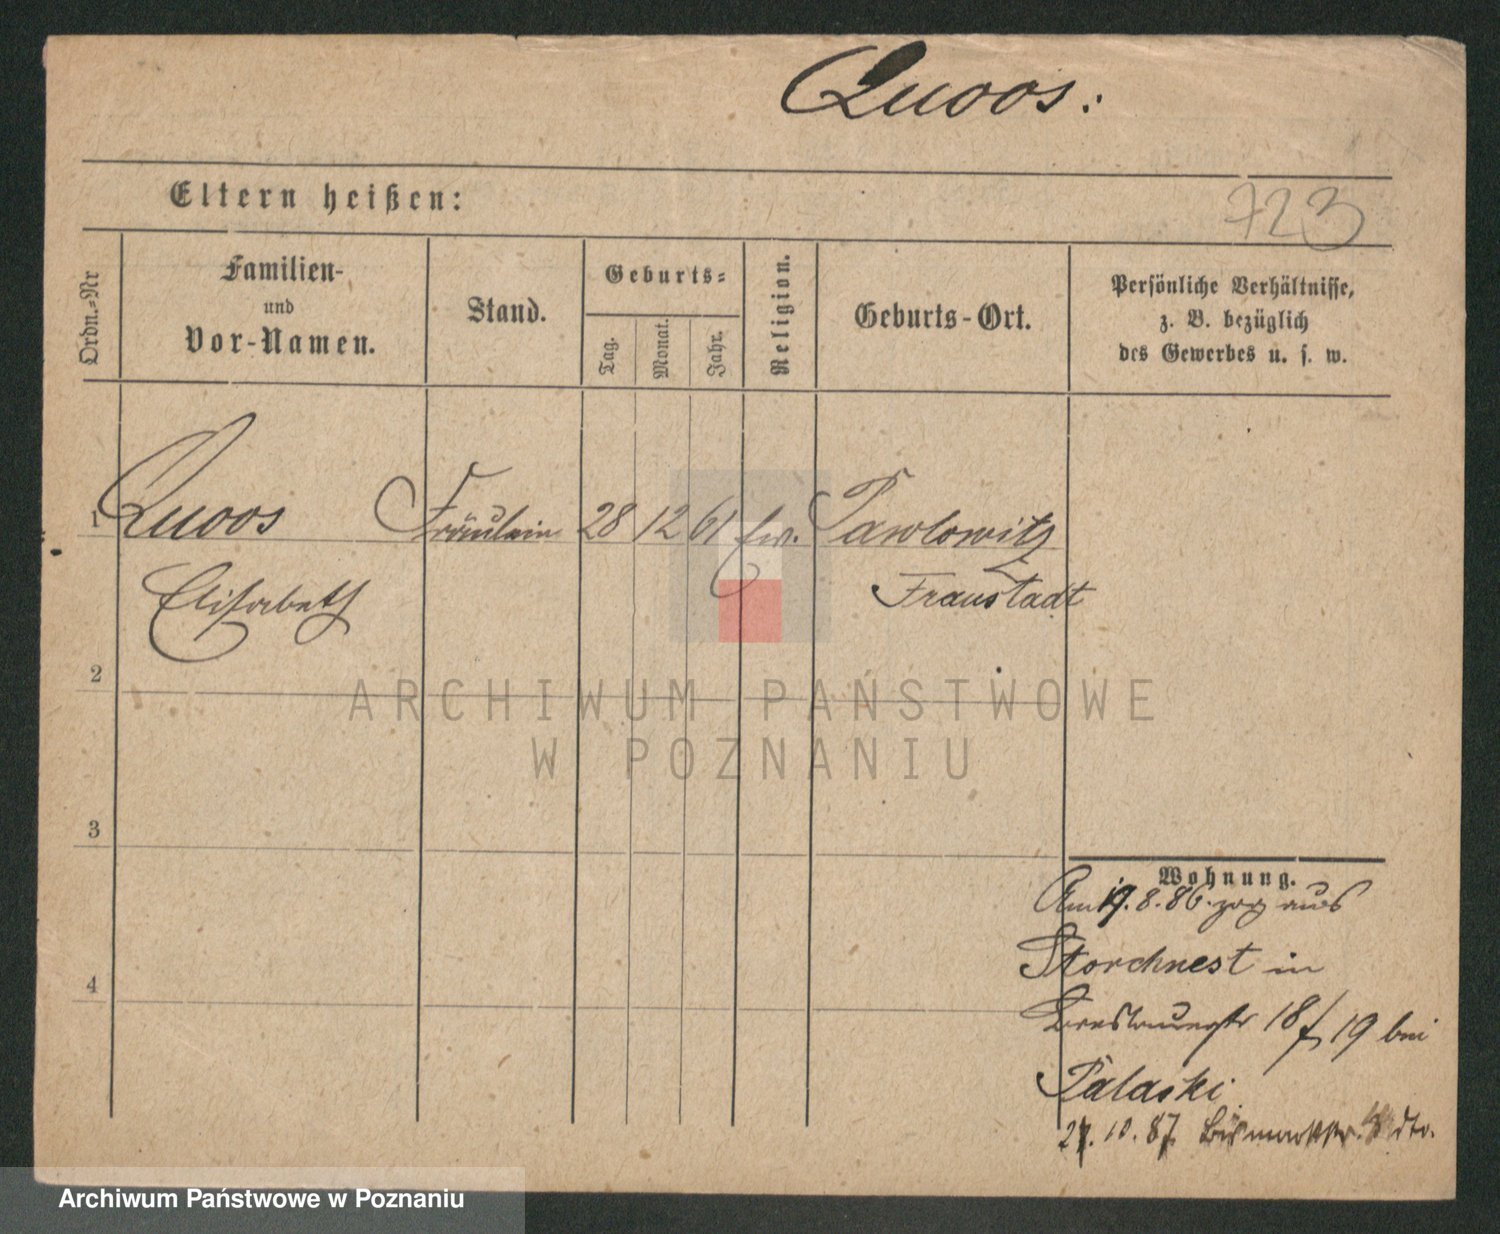 Quoos:
Eltern heißen:
723
Ordn.-Nr
Familien-
und
Vor-Namen.
Stand.
Geburts-
Tag.
Monat.
Jahr.
Religion.
Geburts-Ort.
Persönliche Verhältnisse,
z. B. bezüglich
des Gewerbes u. s. w.
1 Quoos Fräulein 28 12 61 ev. Pawlowitz
Elisabeth Fraustadt
2
3
4
Wohnung.
Am 19.8.86 zog aus
Storchnest in
Breslauerstr 18/19 bei
Palaski
27.10.87. Bismarkstr. dto.
ARCHIWUM PAŃSTWOWE
W POZNANIU
Archiwum Państwowe w Poznaniu